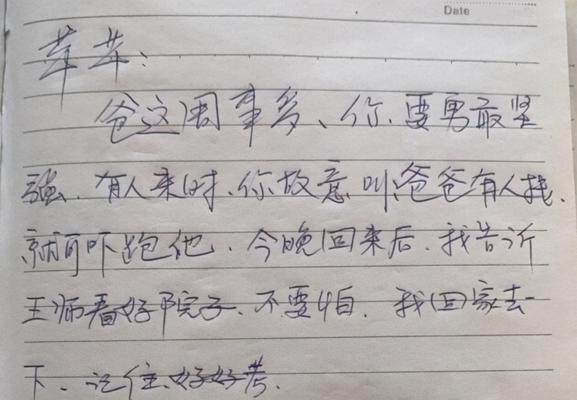 Date
苹苹:
爸这周事多、你要勇敢坚
强、有人来时、你故意叫爸爸有人找、
就可吓跑他、今晚回来后、我告诉
王师看好院子、不要怕、我回家去一
下、记住好好考.